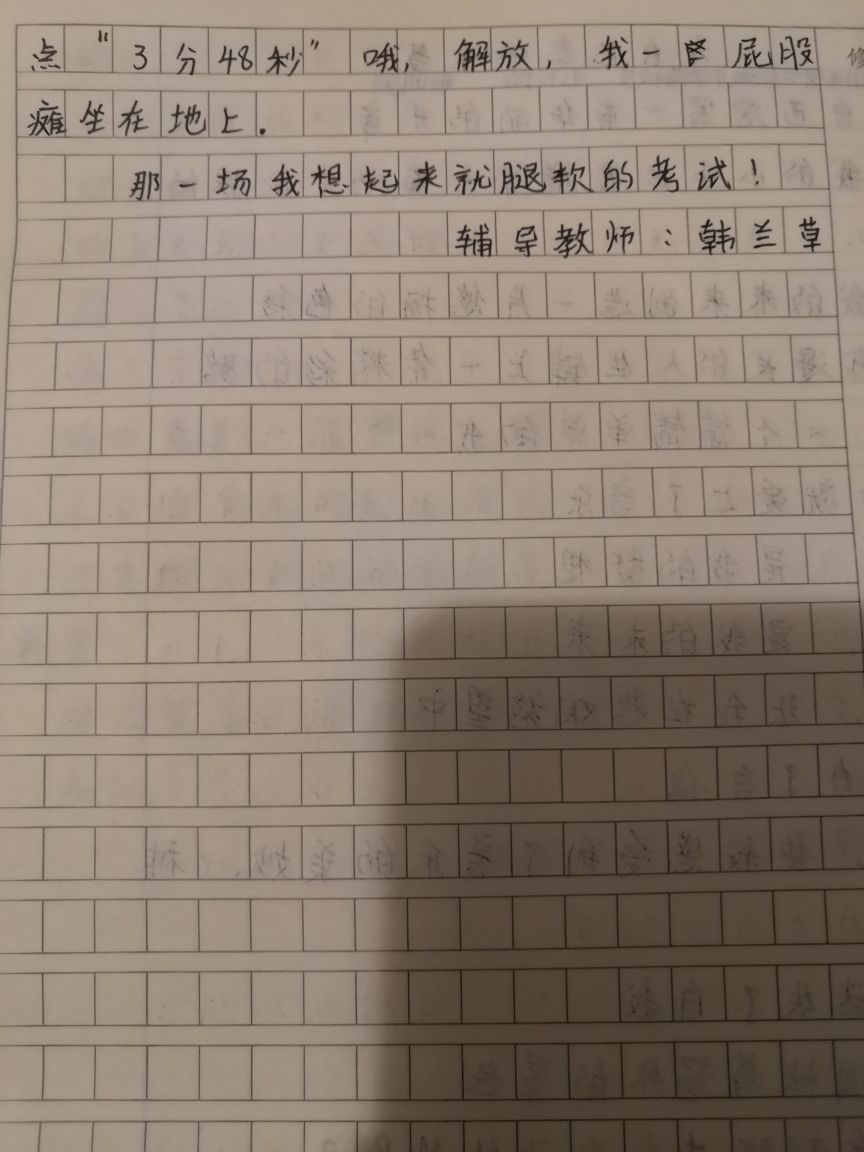 点“3分48秒”哦，解放，我一屁股
瘫坐在地上.
那一场我想起来就腿软的考试！
辅导教师：韩兰草